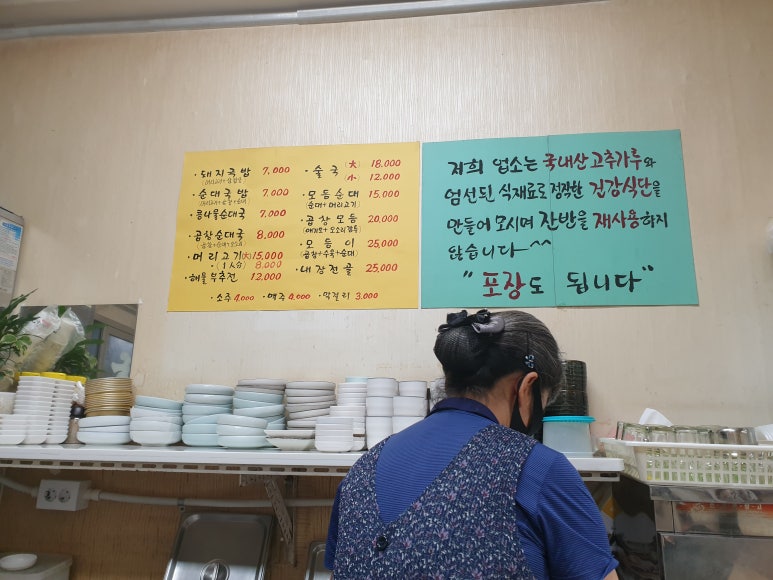 · 돼지국밥 7,000
· 순대국밥 7,000
· 콩나물순대국 7,000
· 곱창순대국 8,000
· 머리고기 (大) 15,000
· (1人分) 8,000
· 해물부추전 12,000
· 술국 (大) 18,000
(小) 12,000
· 모듬순대 15,000
(순대+머리고기)
· 곱창모듬 20,000
· 모듬이 25,000
(곱창+수육+순대)
· 내장전골 25,000
· 소주 4,000 · 맥주 4,000 · 막걸리 3,000
저희 업소는 국내산고추가루와
엄선된 식재료로 정작한 건강식단을
만들어 모시며 잔반을 재사용하지
않습니다~^^
"포장도 됩니다"